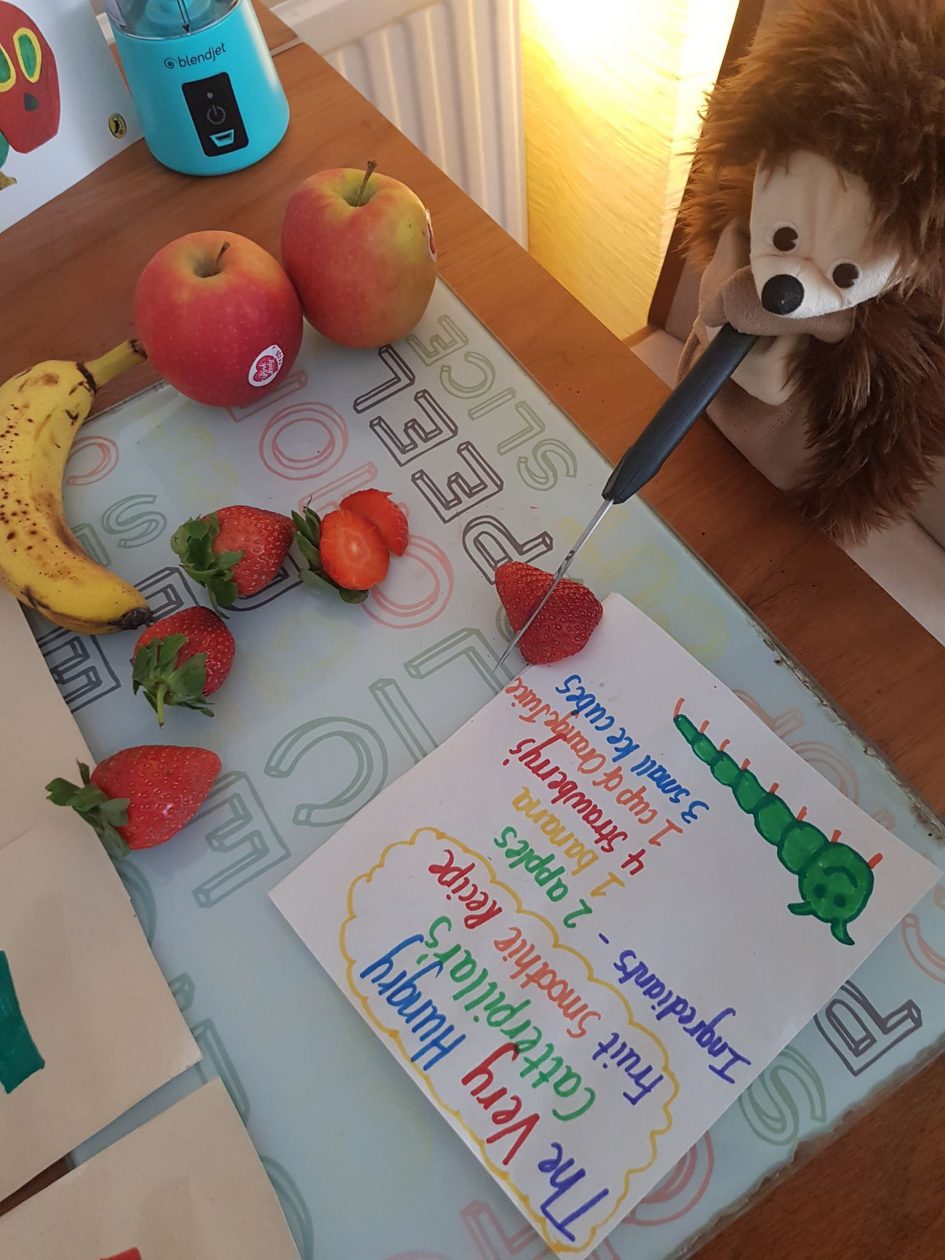 blendjet
Pink Lady
SLICE
PEEL
The Very Hungry
Catterpillar's
Fruit Smoothie Recipe
Ingrediants - 2 apples
1 banana
4 Strawberrys
1 cup of Orange Juice
3 small Ice cubes